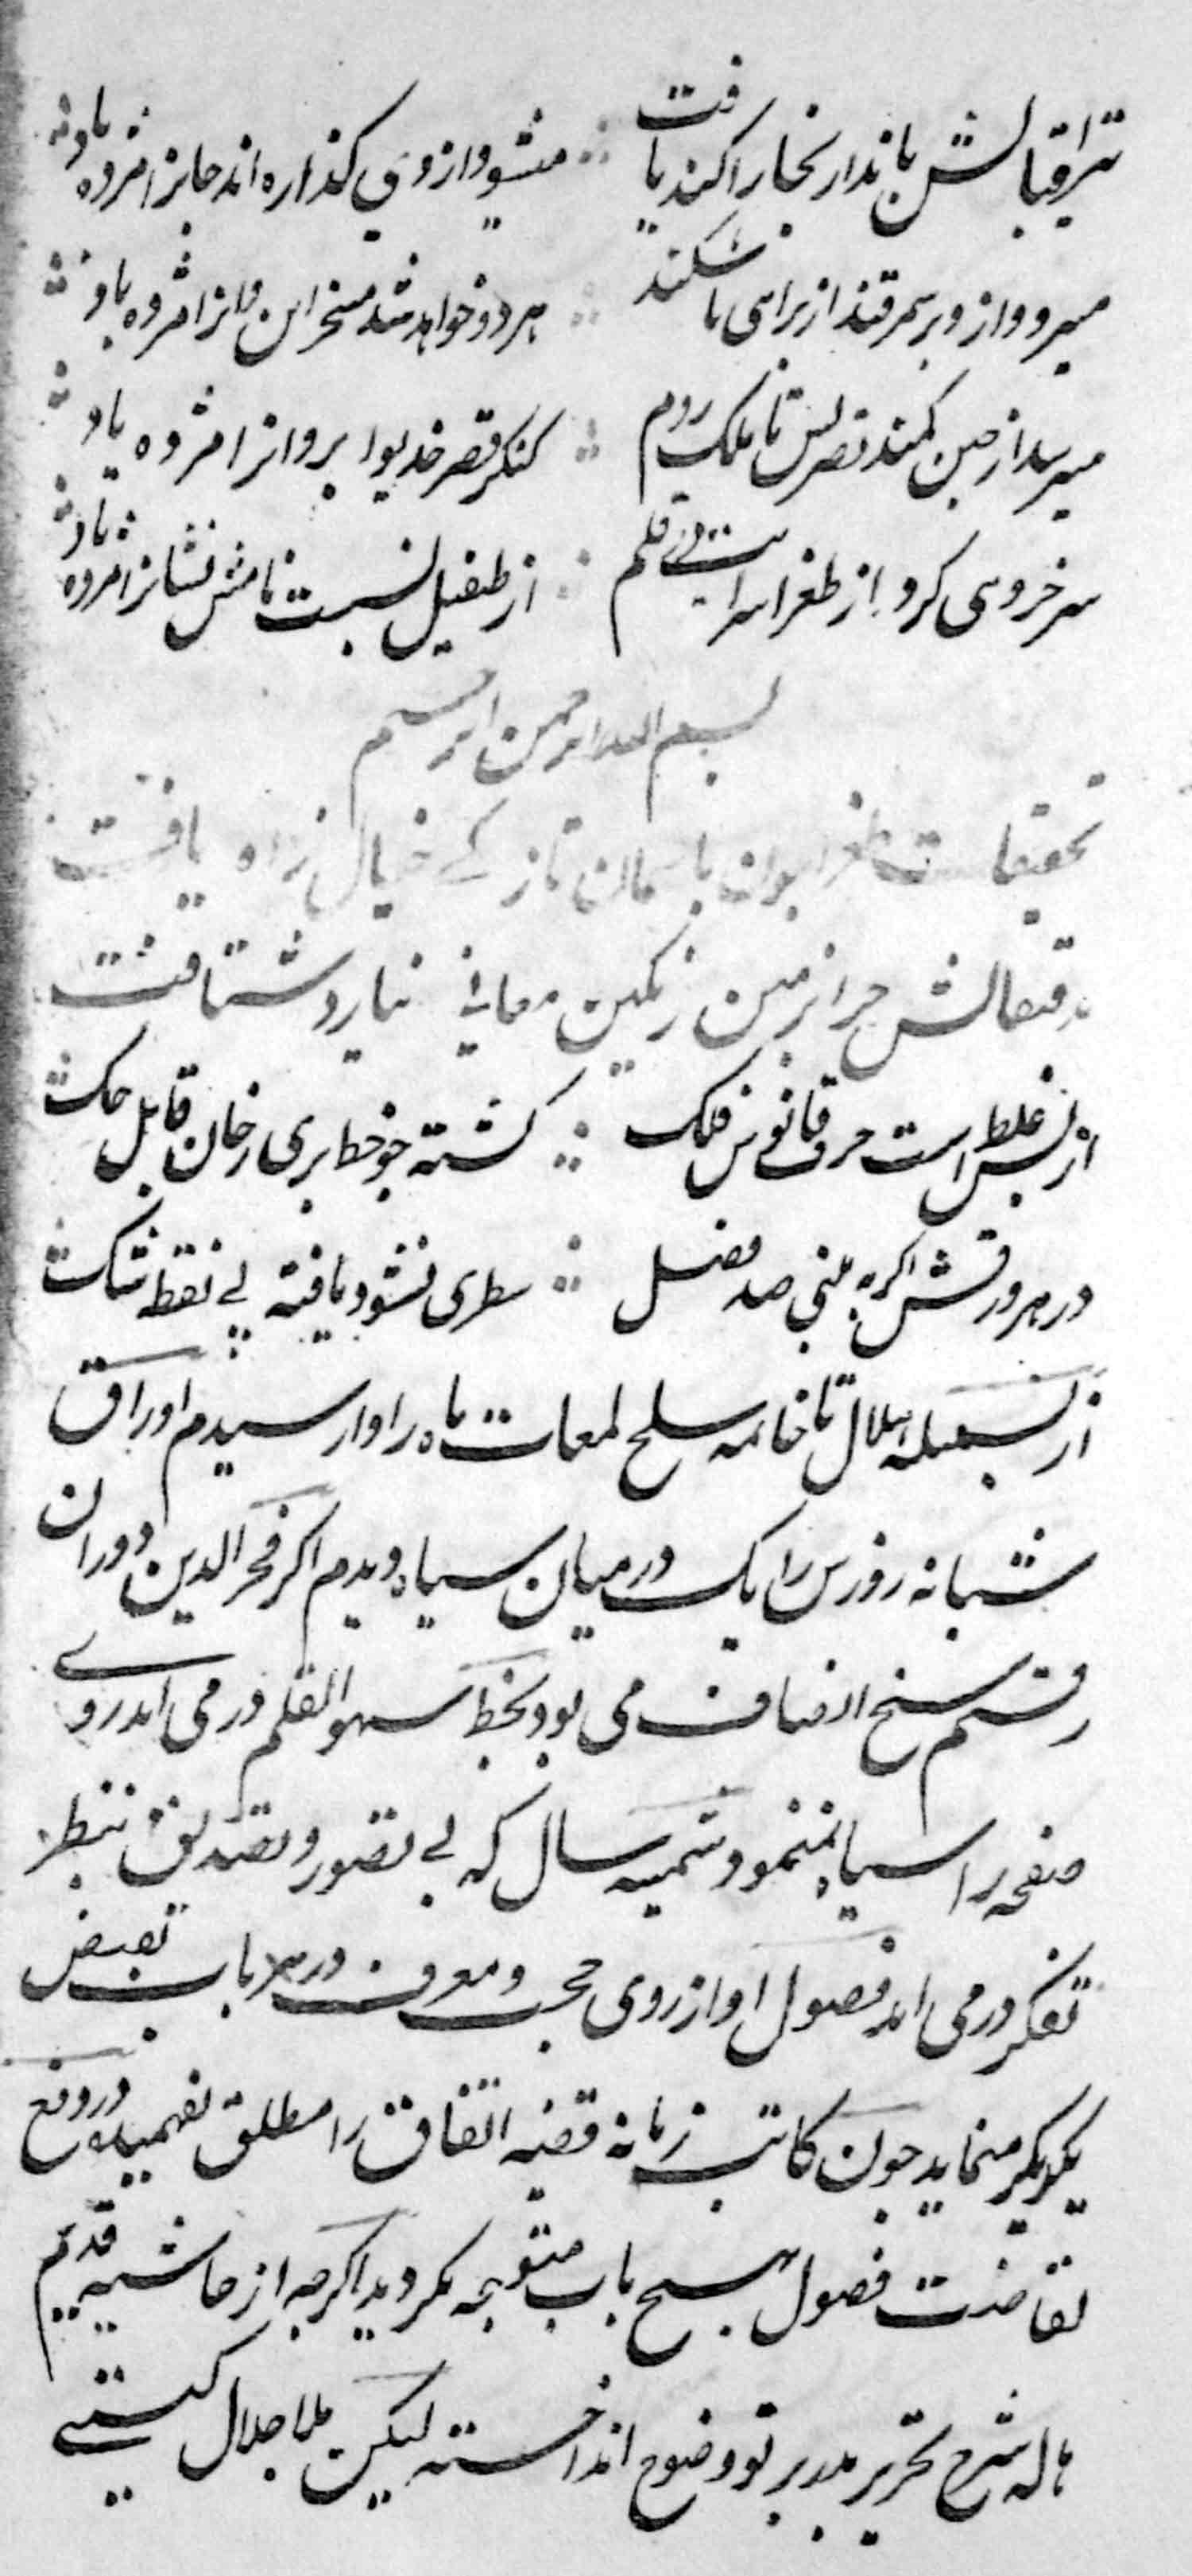 تیر اقبالش باندار بخارا کند یافت میشود از وی گذاره اند جانرا مژده باد
میرود از وبرسمرقند از برای تاشکند هر دو خواهد شد مسخر این وانرا مژده باد
میرسد از چین کمند نصرتش تا ملک روم کنکر قصر خدیو ایروانرا مژده باد
سرخروی کرد از طغراسرا قلم از طفیل نسبت نامش نشانرا مژده باد
بسم الله الرحمن الرحیم
تحقیقات طغرا بآسمان تازکی خیال راه یافت
بدقتعالش جز از زمین رنکین معانی نیارد شتافت
از بس غلط است حرف قانون فلک کشته چو خط پری رخان قابل حک
در هر ورقش اکر به بینی صد فصل سطری نشود یافته بی نقطه شک
از بسمله هلال تا خاتمه سلخ لمعات ماه را وارسیدم اوراق
شبانه روزش را یک درمیان سیاه دیدم اکر فخر الدین دوران
رقم سنج انصاف می بود بخط سهو القلم درمی امد روی
صفحه را سیاه نمینمود شمسیه سال که بی تصور و تصدیق بنظر
تفکر درمی اید فصول او از روی حجب و معرف در هر باب نقیض
یکدیکر مینماید چون کاتب زمانه قضیه اتفاق را مطلق نفهمیده در رفع
تناقضات فصول بهیچ باب متوجه نکردید اکرچه از حاشیه قدیم
هاله شرح تحریر بدر پرتو وضوح انداخته لیکن ملا جلال کیتی